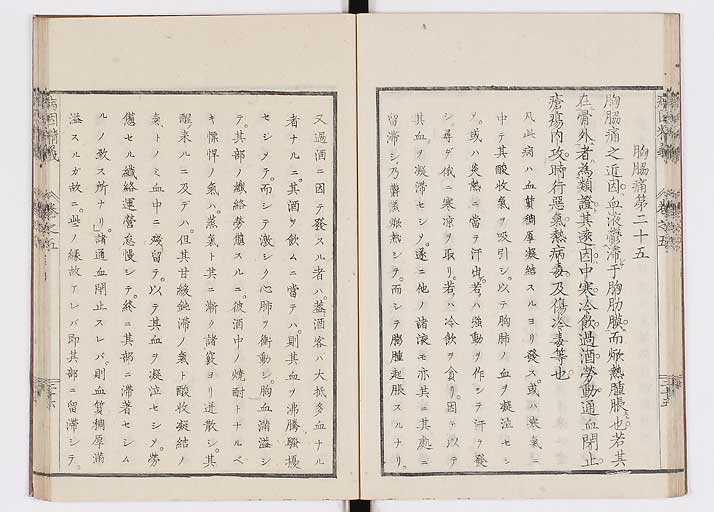 胸脇痛第二十五
胸脇痛之近因血液鬱滞于胸肋膜而焮熱腫脹也若其
在骨外者為類證其遠因中寒冷飲過酒勞動通血閉止
瘡瘍内攻時行惡氣熱病毒及傷冷毒等也
凡此病ハ血質稠厚凝結スルヨリ發ス或ハ寒氣ニ
中テ其酸收氣ヲ吸引シ以テ胸肺ノ血ヲ凝泣セシ
メ或ハ炎熱ニ當テ汗出若ハ強動ヲ作シテ汗ヲ發
シ尋デ俄ニ寒凉ヲ取リ若ハ冷飲ヲ貪リ因テ以テ
其血ヲ凝滞セシメ遂ニ他ノ諸液モ亦其ニ其處ニ
留滞シ乃鬱蒸焮熱シテ而シテ膨腫起脹スルナリ
又過酒ニ因テ發スル者ハ蓋酒客ハ大抵多血ナル
者ナルニ其酒ヲ飲ムニ當テハ則其血ヲ沸騰騷擾
セシメテ而シテ激シク心肺ヲ衝動シ胸血満溢シ
テ其部ノ纖絡勞憊スルニ彼酒中ノ焼酎トナルベ
キ慓悍ノ氣ハ蒸氣ト共ニ漸ク諸竅ヨリ迸散シ其
醒来ルニ及デハ但其甘緩鈍滞ノ氣ト酸收凝結ノ
氣トノミ血中ニ殘留テ以テ其血ヲ凝泣セシメ勞
憊セル纖絡運營怠慢シテ終ニ其部ニ滞著セシム
ルノ致ス所ナリ諸通血閉止スレバ則血質稠厚満
溢スルガ故ニ些ノ縁故アレバ即其部ニ留滞シテ